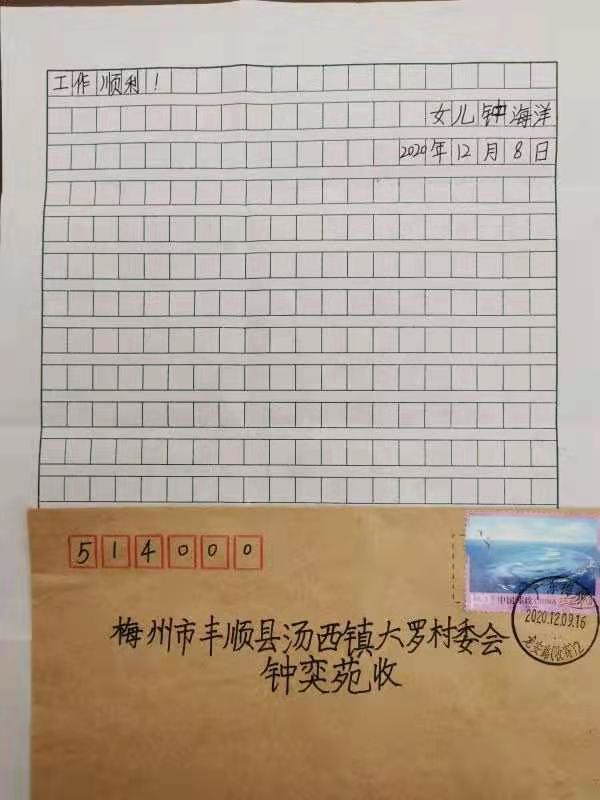 工作顺利！
女儿钟海洋
2020年12月8日
514000
中国邮政 CHINA
2020.12.09.16
梅州市丰顺县汤西镇大罗村委会
钟奕苑收